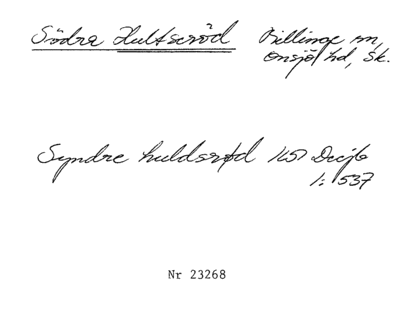 Södra Hultseröd Billinge sn,
Onsjö hd, Sk.
Syndre huldsrød 1651 Decjb
1: 537
Nr 23268